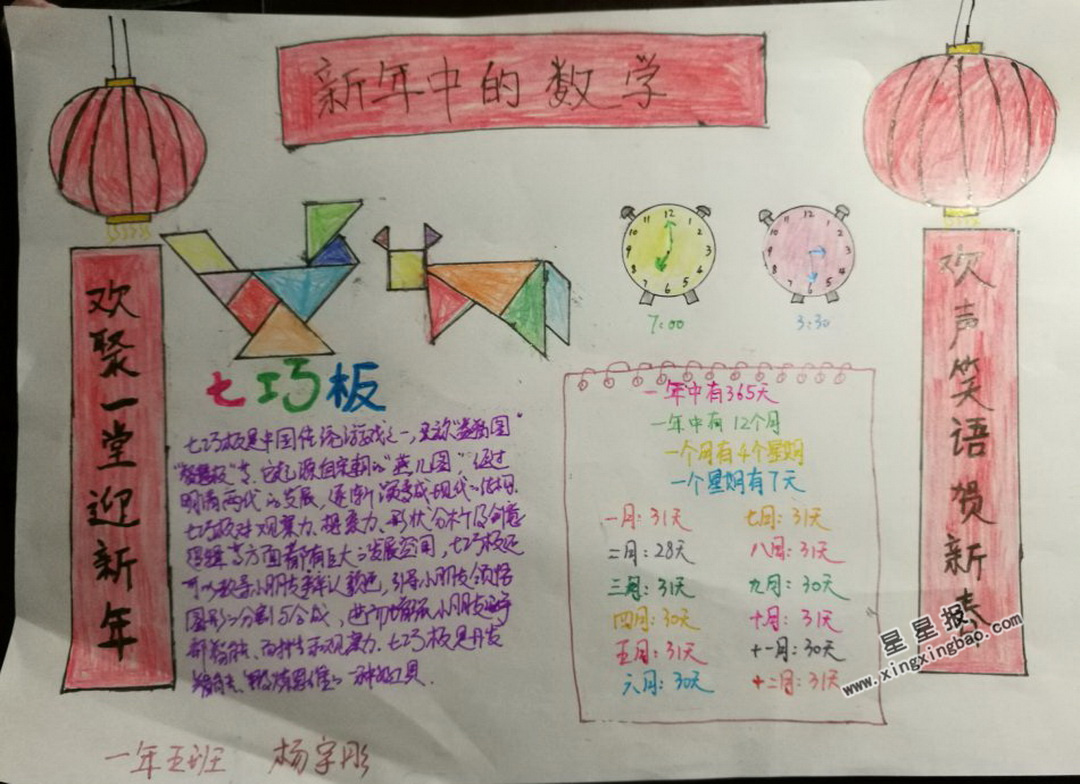 新年中的数学
欢聚一堂迎新年
欢声笑语贺新春
12
1
2
3
4
5
6
7
8
9
10
11
12
1
2
3
4
5
6
7
8
9
10
11
7:00
3:30
七巧板
七巧板是中国传统游戏之一,又称"益智图"
"智慧板"等。它起源自宋朝的"燕几图",经过
明清两代的发展,逐渐演变成现代的结构.
七巧板对观察力、探索力、形状分析及创意
思维等方面都有巨大的发展空间,七巧板还
可以教导小朋友辨认颜色,引导小朋友领悟
图形的分割与合成,进而增强小朋友
智能、 和观察力.七巧板是开发
的一种好工具.
一年中有365天
一年中有12个月
一个月有4个星期
一个星期有7天
一月:31天 七月:31天
二月:28天 八月:31天
三月:31天 九月:30天
四月:30天 十月:31天
五月:31天 十一月:30天
六月:30天 十二月:31天
星星报
www.xingxingbao.com
一年五班 杨宇彤